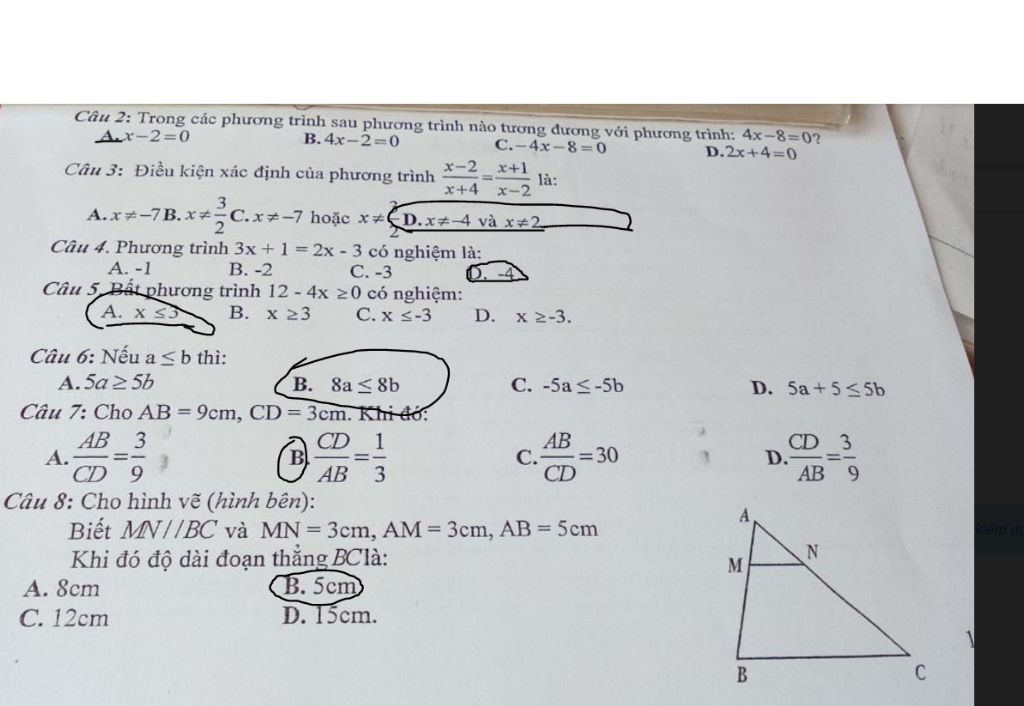 Câu 2: Trong các phương trình sau phương trình nào tương đương với phương trình: 4x−8=0?
A. x−2=0 B. 4x−2=0 C.−4x−8=0 D.2x+4=0
Câu 3: Điều kiện xác định của phương trình (x−2)/(x+4)=(x+1)/(x−2) là:
A. x≠−7 B. x≠3/2 C. x≠−7 hoặc x≠3/2 D. x≠−4 và x≠2
Câu 4. Phương trình 3x + 1 = 2x - 3 có nghiệm là:
A. -1 B. -2 C. -3 D. -4
Câu 5. Bất phương trình 12 - 4x ≥0 có nghiệm:
A. x ≤3 B. x ≥3 C. x ≤-3 D. x ≥-3.
Câu 6: Nếu a ≤ b thì:
A. 5a ≥ 5b B. 8a ≤ 8b C. -5a ≤ -5b D. 5a + 5 ≤ 5b
Câu 7: Cho AB = 9cm, CD = 3cm. Khi đó:
A. AB/CD=3/9 B. CD/AB=1/3 C. AB/CD=30 D. CD/AB=3/9
Câu 8: Cho hình vẽ (hình bên):
Biết MN//BC và MN = 3cm, AM = 3cm, AB = 5cm
Khi đó độ dài đoạn thẳng BC là:
A. 8cm B. 5cm
C. 12cm D. 15cm.
A
M N
B C